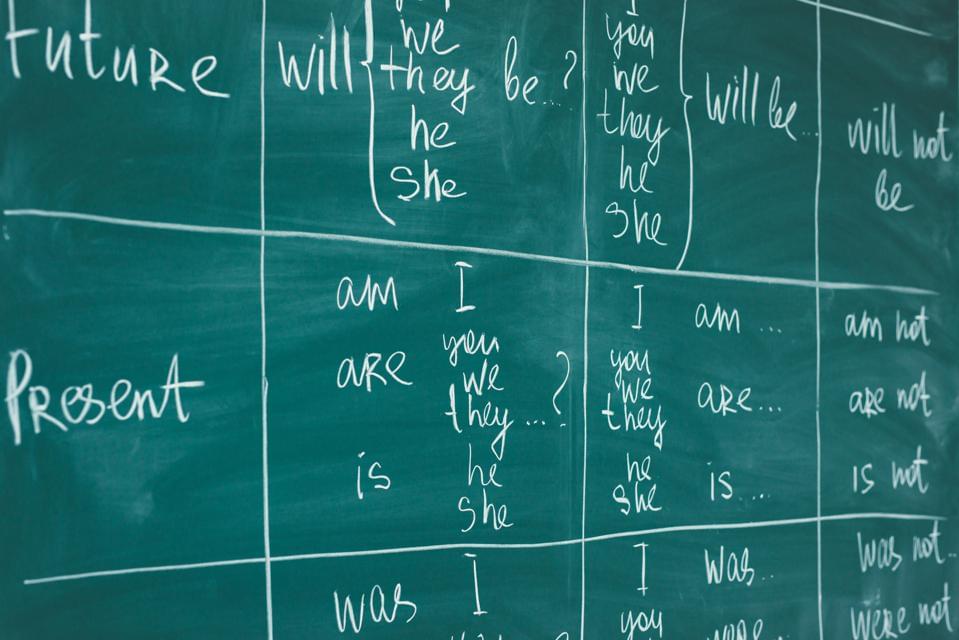 Future
will
we
they be...?
he
she
I
you
we
they
he
she
will be...
will not
be
Present
am I
are you
we
they...?
is he
she
I am ...
you
we
they
are...
he
she
is....
am not
are not
is not
was I
I was..
you
was not..
were not